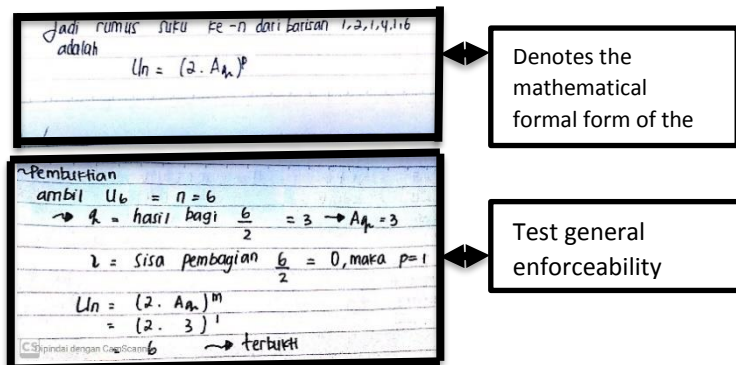 Jadi rumus suku ke-n dari barisan 1,2,1,4,1,6
adalah
Un = (2. An)^p
Denotes the
mathematical
formal form of the
~Pembuktian
ambil U6 = n = 6
→ q = hasil bagi 6/2 = 3 → Aq = 3
r = sisa pembagian 6/2 = 0, maka p=1
Un = (2. An)^m
= (2. 3)^1
6 → terbukti
CS Dipindai dengan CamScanner
Test general
enforceability